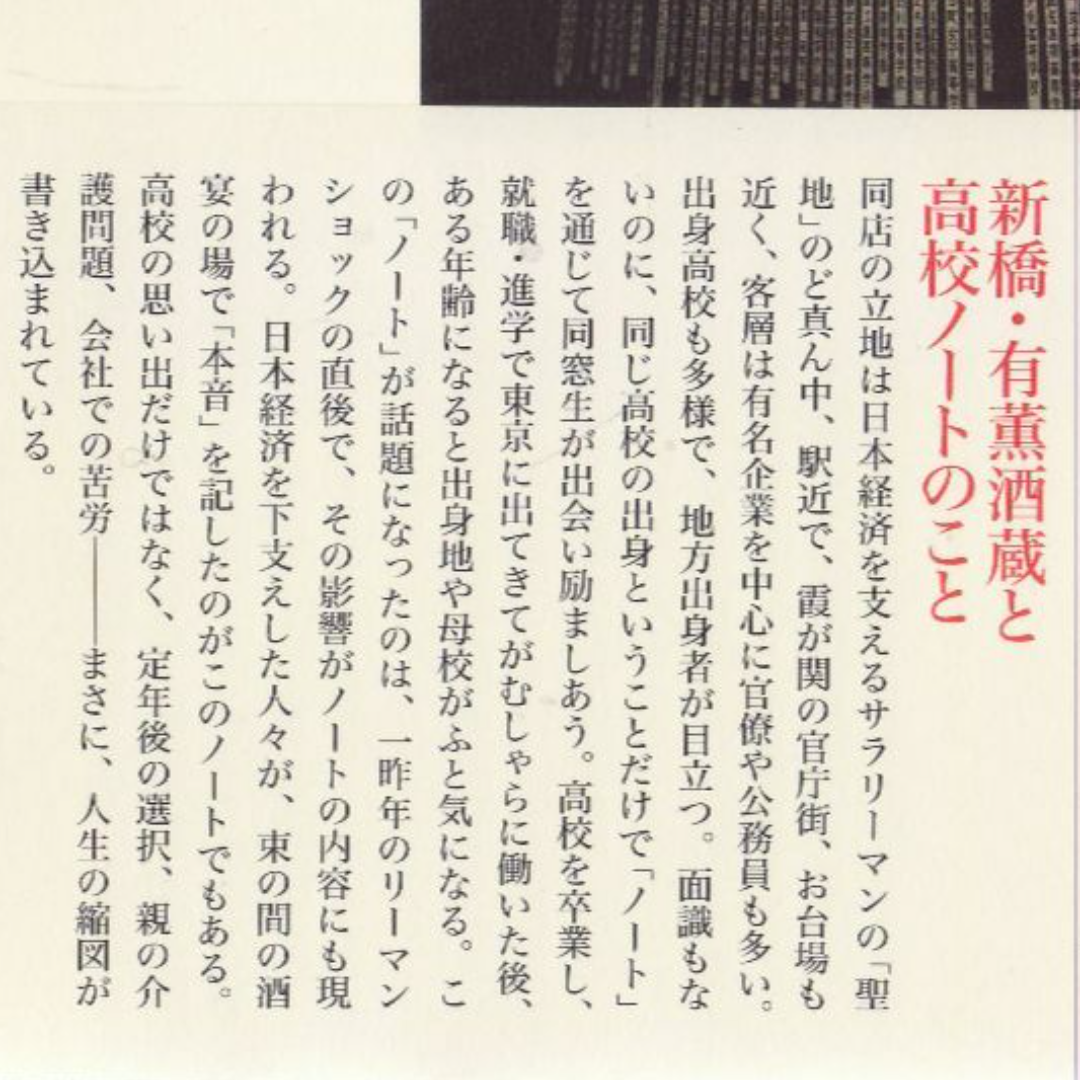 新橋・有薫酒蔵と
高校ノートのこと
同店の立地は日本経済を支えるサラリーマンの「聖
地」のど真ん中、駅近で、霞が関の官庁街、お台場も
近く、客層は有名企業を中心に官僚や公務員も多い。
出身高校も多様で、地方出身者が目立つ。面識もな
いのに、同じ高校の出身ということだけで「ノート」
を通じて同窓生が出会い励ましあう。高校を卒業し、
就職・進学で東京に出てきてがむしゃらに働いた後、
ある年齢になると出身地や母校がふと気になる。こ
の「ノート」が話題になったのは、一昨年のリーマン
ショックの直後で、その影響がノートの内容にも現
われる。日本経済を下支えした人々が、束の間の酒
宴の場で「本音」を記したのがこのノートでもある。
高校の思い出だけではなく、定年後の選択、親の介
護問題、会社での苦労――まさに、人生の縮図が
書き込まれている。